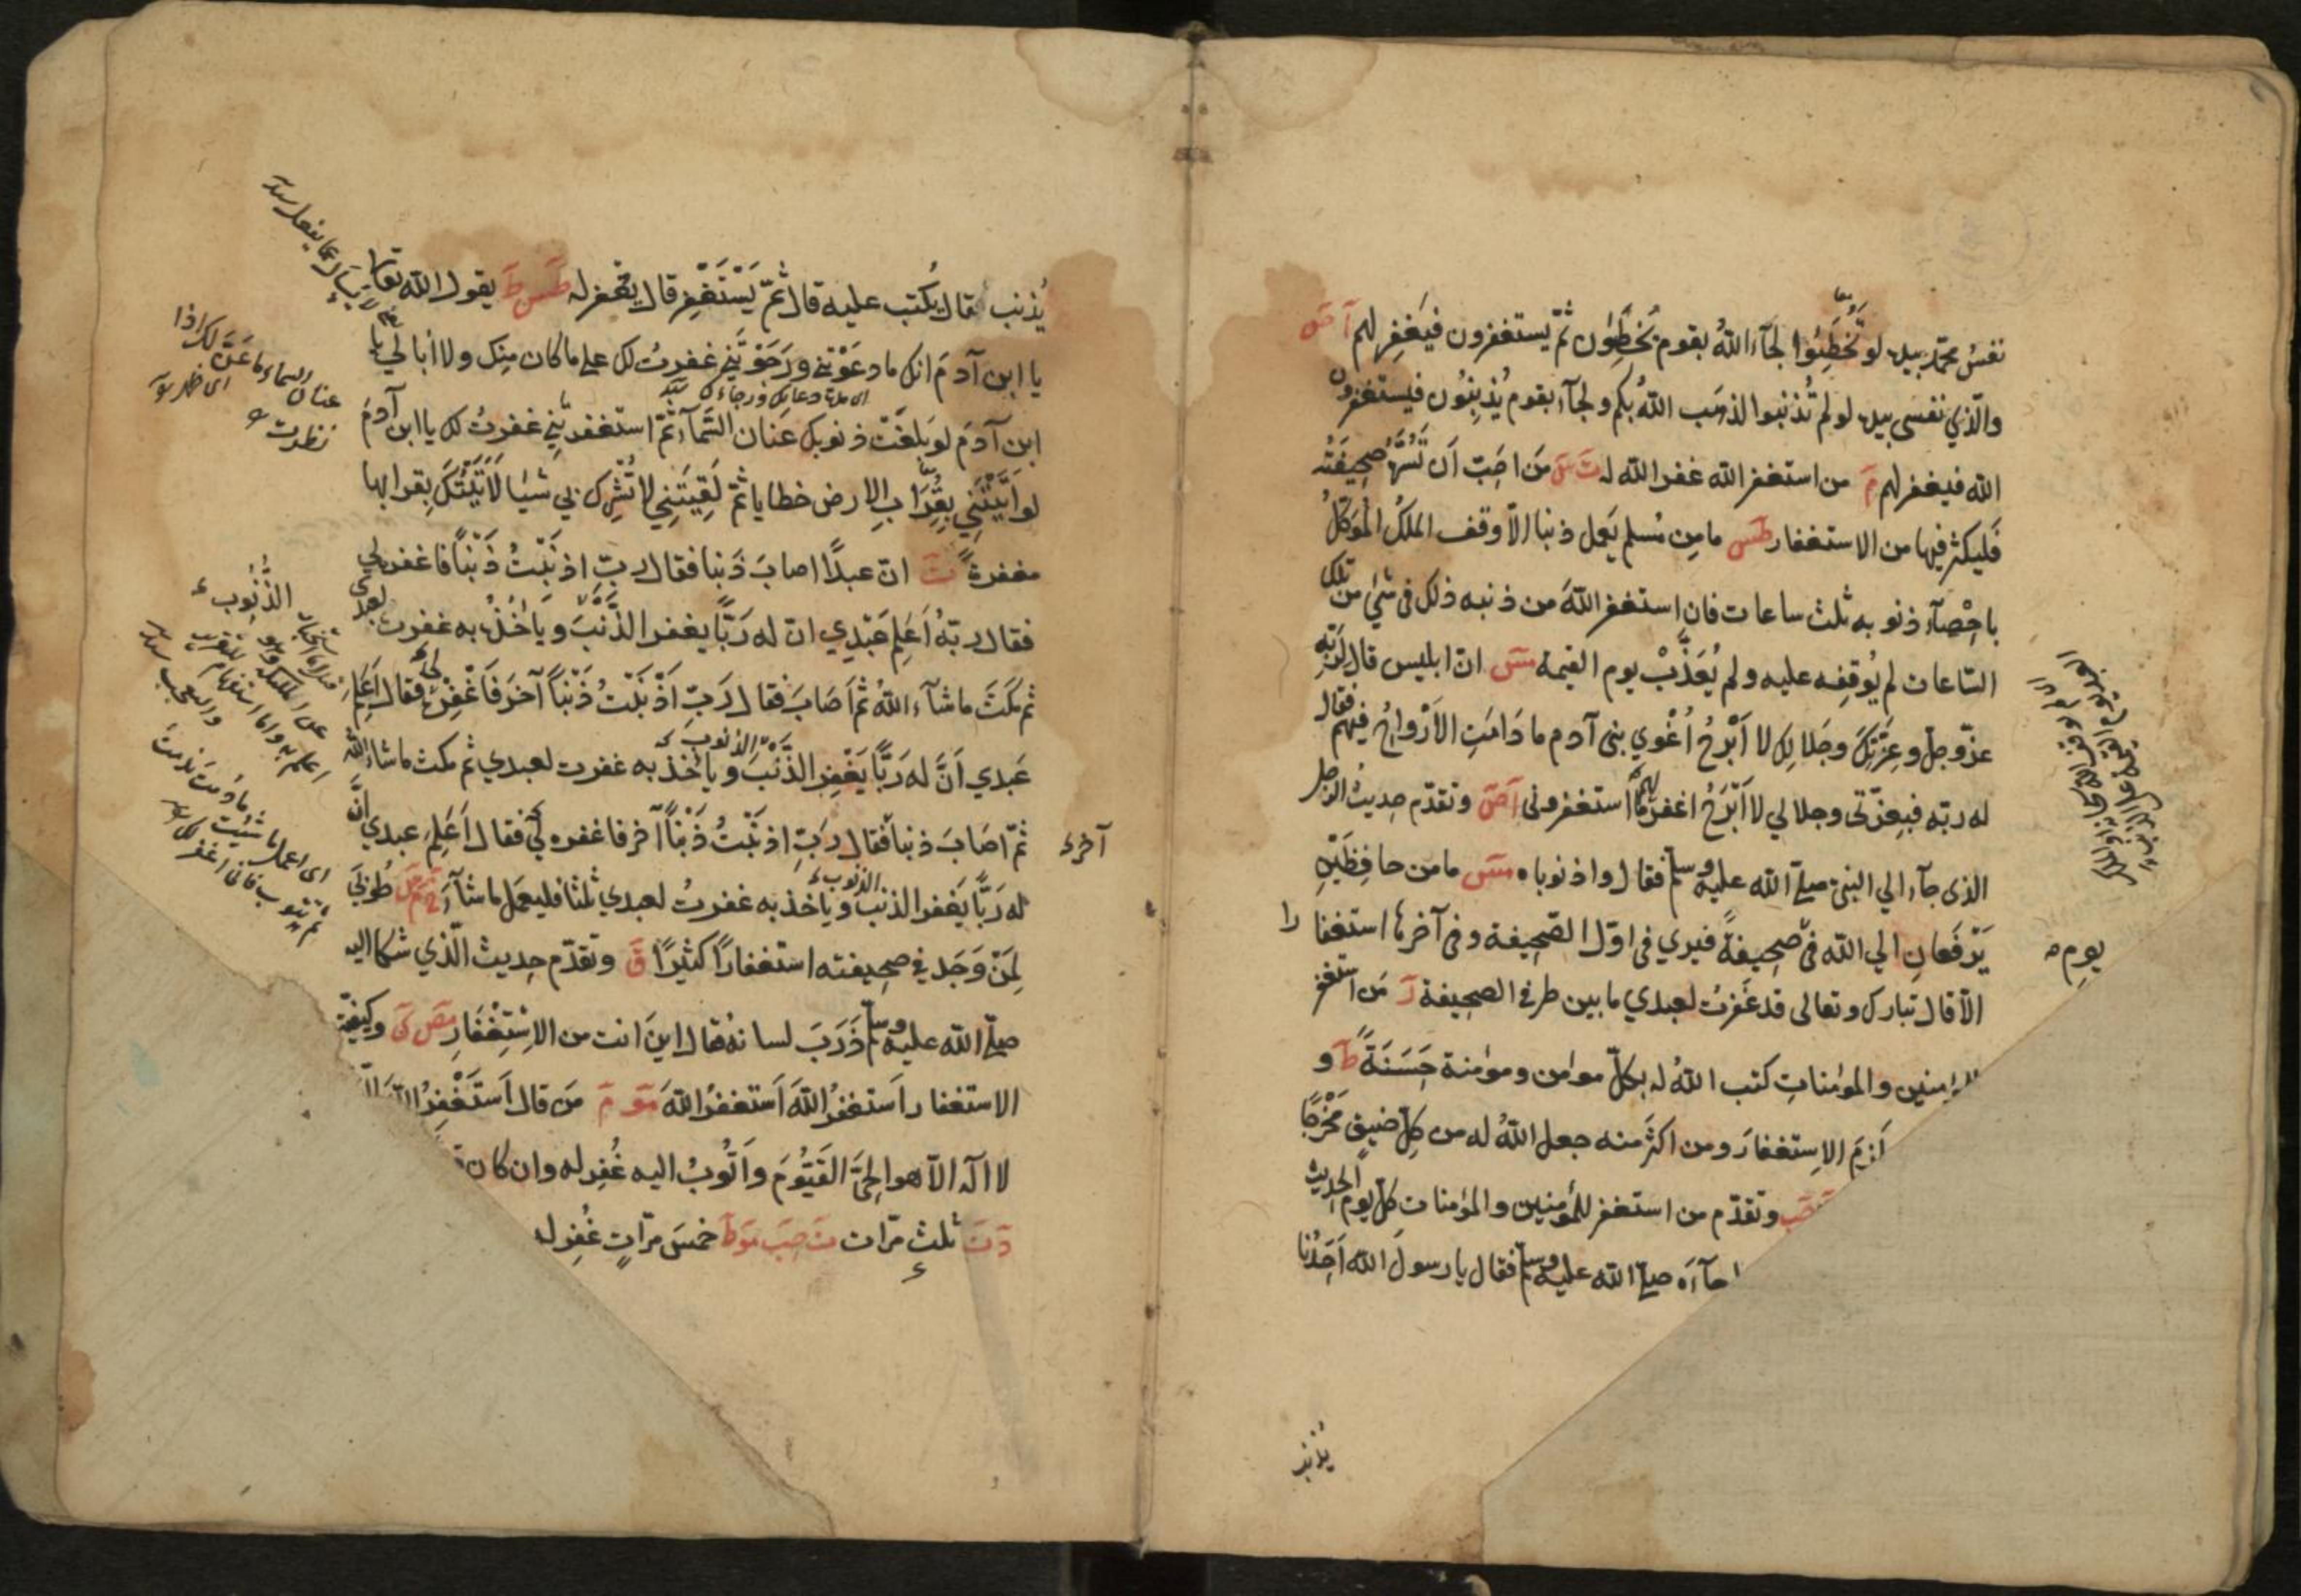 نفس محمّد بيده لو تُخْطِئُوا لجآء اللهُ بقوم يُخْطِئون ثمّ يستغفرون فيَغفِر لهم آ ص
والّذي نفسي بيده لو لم تُذْنبوا لذهَب اللهُ بكم ولجآء بقوم يُذنِبُون فيستغفرون
الله فيغفر لهم م من استغفر الله غفر الله له ت س مَن احَبّ اَن تَسُرَّهُ صحِيفَتُه
فليكثر فيها من الاستغفار طس مامِن مُسلم يَعمل ذنبا الّا وقف الملَكُ المُوَكّلُ
باِحْصآء ذنوبه ثلٰث ساعات فان استغفر اللهَ من ذنبه ذلك فى شئ من تلك
السّاعات لم يُوقِفه عليه ولم يُعَذَّبْ يوم القيمة مس انّ ابليس قال لِرَبّه
عزّ وجلّ وعِزّتِكَ وجَلالِك لا اَبْرَحُ اُغْوِي بنى آدم ما دَامَتِ الاَرْواحُ فيهم فقال
له ربّه فبِعِزّتى وجلالي لا اَبْرَحُ اغفر لهم ما استغفرونى آ ص وتقدّم حديث الرجل
الذى جآء الي النبيّ صلّى الله عليه وسلّم فقال واذنوباه مس مامن حافِظَيْنِ
يَرْفَعانِ الي الله فى صحيفةً فيري فى اوّل الصّحيفة وفى آخرها استغفارا
الّا قال تبارك وتعالى قد غَفَرْتُ لعبدي ما بين طرفي الصحيفة ر مَن استغفر
للمؤمنين والمؤمناتِ كتب اللهُ له بكلّ مؤمن ومؤمنة حَسَنَةً ط و
لزِمَ الاِستغفارَ ومن اكثر منه جعل اللهُ له من كلّ ضيقٍ مَخْرَجًا
حب وتقدّم من استغفر للمؤمنين والمؤمنات كلّ يوم الحديث
جآءه صلّى الله عليه وسلّم فقال يا رسول الله اَحَدُنا
يوم
يذنب
يُذنب قال يُكتب عليه قال ثمّ يَسْتَغْفِر قال يُغفر له طس ط يقول الله تعالى
يا ابن آدمَ انك ما دعَوْتنِي ورَجَوْتَنِي غفرتُ لك على ما كان مِنك ولا اُبالي يا
اى مدّة دعائك ورجائك
ابن آدَمَ لو بَلغَتْ ذنوبك عنان السّمآء ثمّ استغفرتَنِي غفرتُ لك يا ابن آدمَ
لو اَتَيْتَنِي بِقُرَابِ الارض خطايا ثمّ لَقِيتَنِي لا تُشْرِك بي شيئا لَاَتَيْتُكَ بِقرابها
مغفرةً ت انّ عبدًا اصابَ ذَنبا فقال ربِّ اذنَبْتُ ذَنْبًا فاغفر لي
فقال ربّهُ اَعَلِمَ عَبْدِي انّ له رَبًّا يغفر الذَّنْبَ وياخُذُ به غفرت لعبدى
ثم مكَثَ ما شآء اللهُ ثمّ اَصَابَ فقال رَبّ اَذْنَبْتُ ذَنْبًا آخَرَ فَاغْفِرْ لي فقال اَعَلِمَ
عَبدي اَنَّ له رَبًّا يَغْفِر الذّنْبَ وياخُذ به غفرت لعبدي ثم مكث ما شاء الله
ثمّ اصَابَ ذنبا فقال رَبِّ اذنَبْتُ ذَنْبًا آخر فاغفره لي فقال اَعَلِمَ عبدي انَّ
له رَبًّا يَغفر الذنبَ وياخذ به غفرتُ لعبدي ثلٰثا فليعمَل ما شآء خ م س طُوبَي
لِمَنْ وَجَد في صحِيفته استغفارًا كثيرًا ق وتقدّم حديث الّذي شكا اليه
صلّى الله عليه وسلّم ذَرَبَ لسانه فقال اينَ انت من الاِسْتِغْفَارِ مص ى وكيفيّة
الاستغفار اَستغفرُ اللهَ اَستغفرُ اللهَ مو م مَن قال اَستَغْفِرُ اللهَ الّذ
لا اله الّا هو الحيَّ القَيُّومَ واَتُوبُ اليه غُفِر له وان كان
د ت ثلث مرّات ت حب مو ط خمسَ مرّاتٍ غُفِر له
آخر
الذّنُوب
عنان السماء ما عنّ لك اذا
نظرت
اى اعمل ما شئت